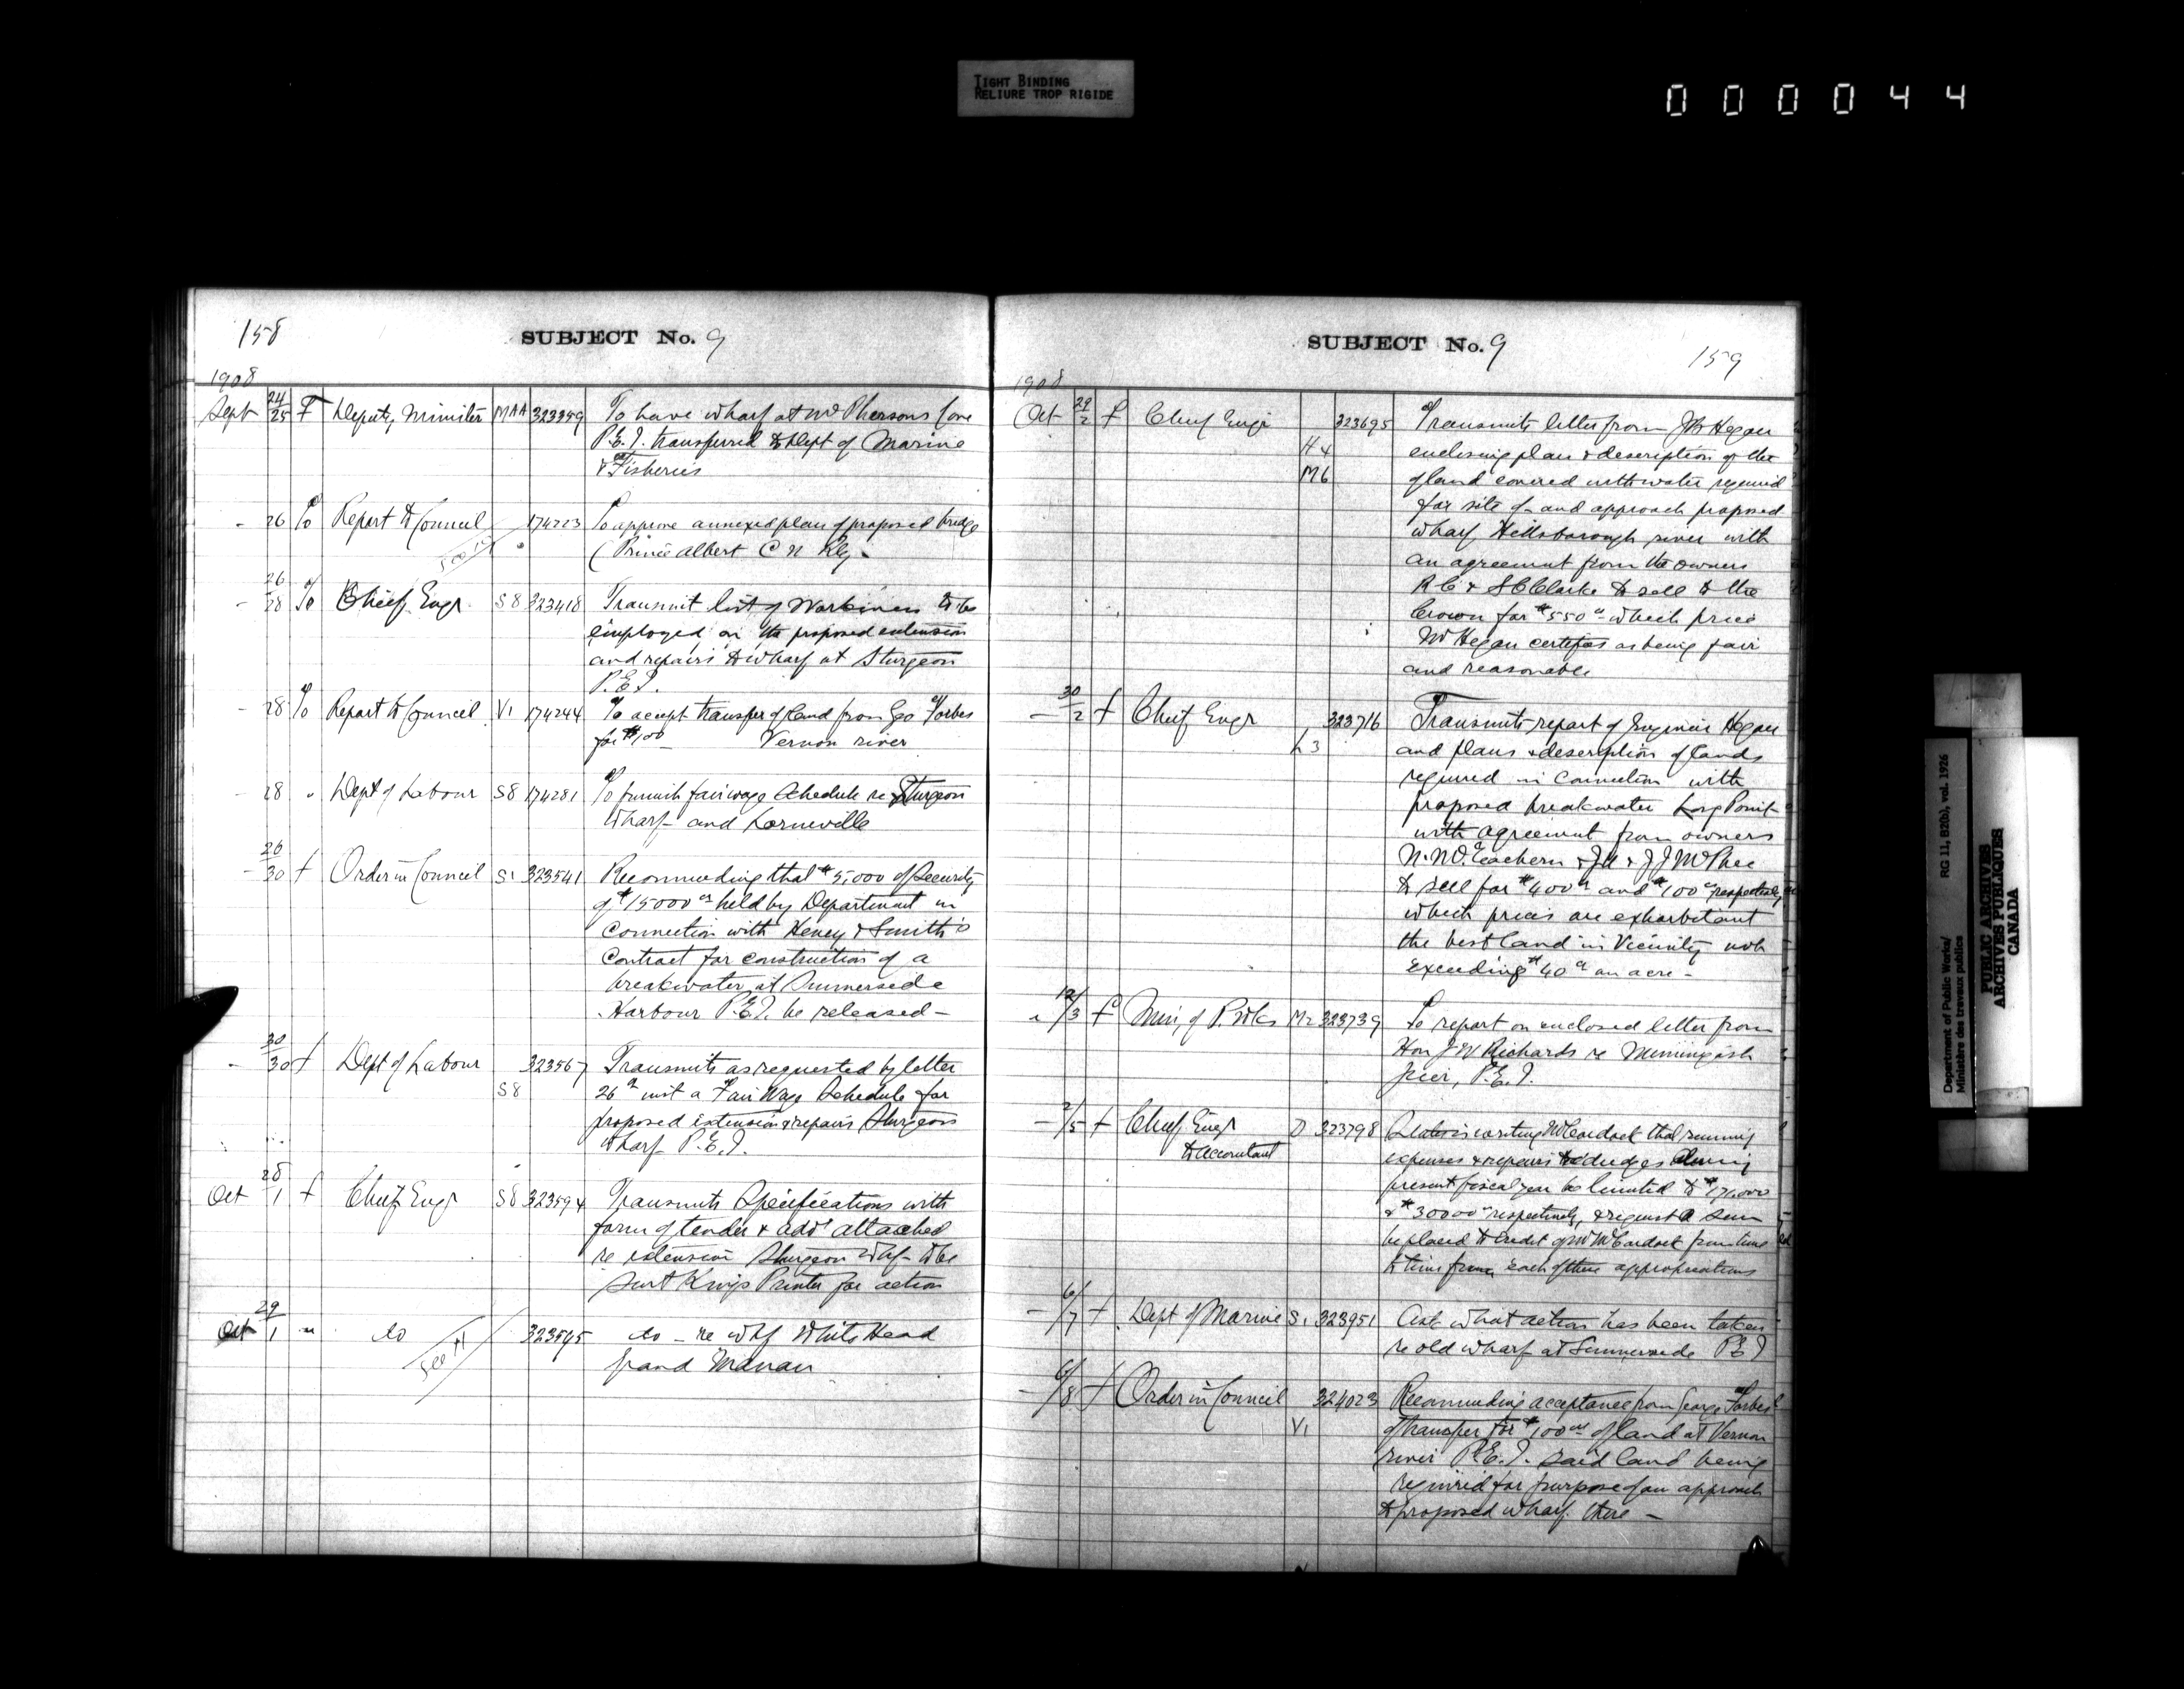 TIGHT BINDING
RELIURE TROP RIGIDE
000044
158
SUBJECT No. 9
1908
Sept 24/25 F Deputy Minister MAA 323359 To have wharf at McPhersons Cove
P.E.I. transferred to Dept of Marine
& Fisheries
- 26 To Report to Council 174223 To approve annexed plan of proposed bridge
(Prince Albert C N Rly.
- 26/28 To Chief Engr. S8 323418 Transmit list of Workmen to be
employed on the proposed extension
and repairs to wharf at Sturgeon
P.E.I.
- 28 To Report to Council V1 174244 To accept transfer of land from Geo Forbes
for $100 - Vernon river
- 28 " Dept of Labour S8 174281 To furnish fair wage Schedule re Sturgeon
Wharf and Lorneville
- 26/30 f Order in Council S1 323541 Recommending that $5,000 of Security
of $15000 00 held by Department in
Connection with Heney & Smith's
Contract for construction of a
breakwater at Summerside
Harbour P.E.I. be released -
- 30/30 f Dept of Labour 323567 Transmits as requested by letter
S8 26th inst a Fair Wage Schedule for
proposed extension & repairs Sturgeon
Wharf P.E.I.
Oct 28/1 f Chief Engr S8 323594 Transmits Specifications with
form of tender & advt attached
re extension Sturgeon Whf to be
sent Kings Printer for action
Oct 29/1 " do See H 323595 do - re Whf White Head
Grand Manan
SUBJECT No. 9
159
1908
Oct 29/2 f Chief Engr 323695 Transmits letter from JB Hegan
H4 enclosing plan & description of the
M6 of land covered with water required
for site of and approach proposed
wharf Hillsborough river with
an agreement from the owners
R C & S C Clarke to sell to the
Crown for $550 00 - which price
Mr Hegan certifies as being fair
and reasonable
- 30/2 f Chief Engr 323716 Transmits report of Engineer Hegan
L3 and plans & description of lands
required in Connection with
proposed breakwater Long Point
with agreement from owners
N. McEachern & J A & J J McPhee
to sell for $400 00 and $100 00 respectively
which prices are exhorbitant
the best land in Vicinity not
exceeding $40 00 an acre -
" 12/3 f Min, of P. Wks M2 323739 To report on enclosed letter from
Hon J W Richards re Miminigash
pier, P.E.I.
- 2/5 f Chief Engr D 323798 States is writing McCordock that running
to accountant expenses & repairs to dredges during
present fiscal year be limited to $17,000
& $30000 00 respectively, & request a sum
be placed to Credit of Mr McCordock from time
to time from each of these appropriations
- 6/7 f Dept of Marine S1 323951 Ask what action has been taken
re old wharf at Summerside P E I
- 6/8 f Order in Council 324023 Recommending acceptance from George Forbes
V1 of transfer for $100 00 of land at Vernon
river P.E.I. said land being
required for purpose of an approach
to proposed wharf there -
Department of Public Works/
Ministère des travaux publics
RG 11, B2(b), vol. 1926
PUBLIC ARCHIVES
ARCHIVES PUBLIQUES
CANADA